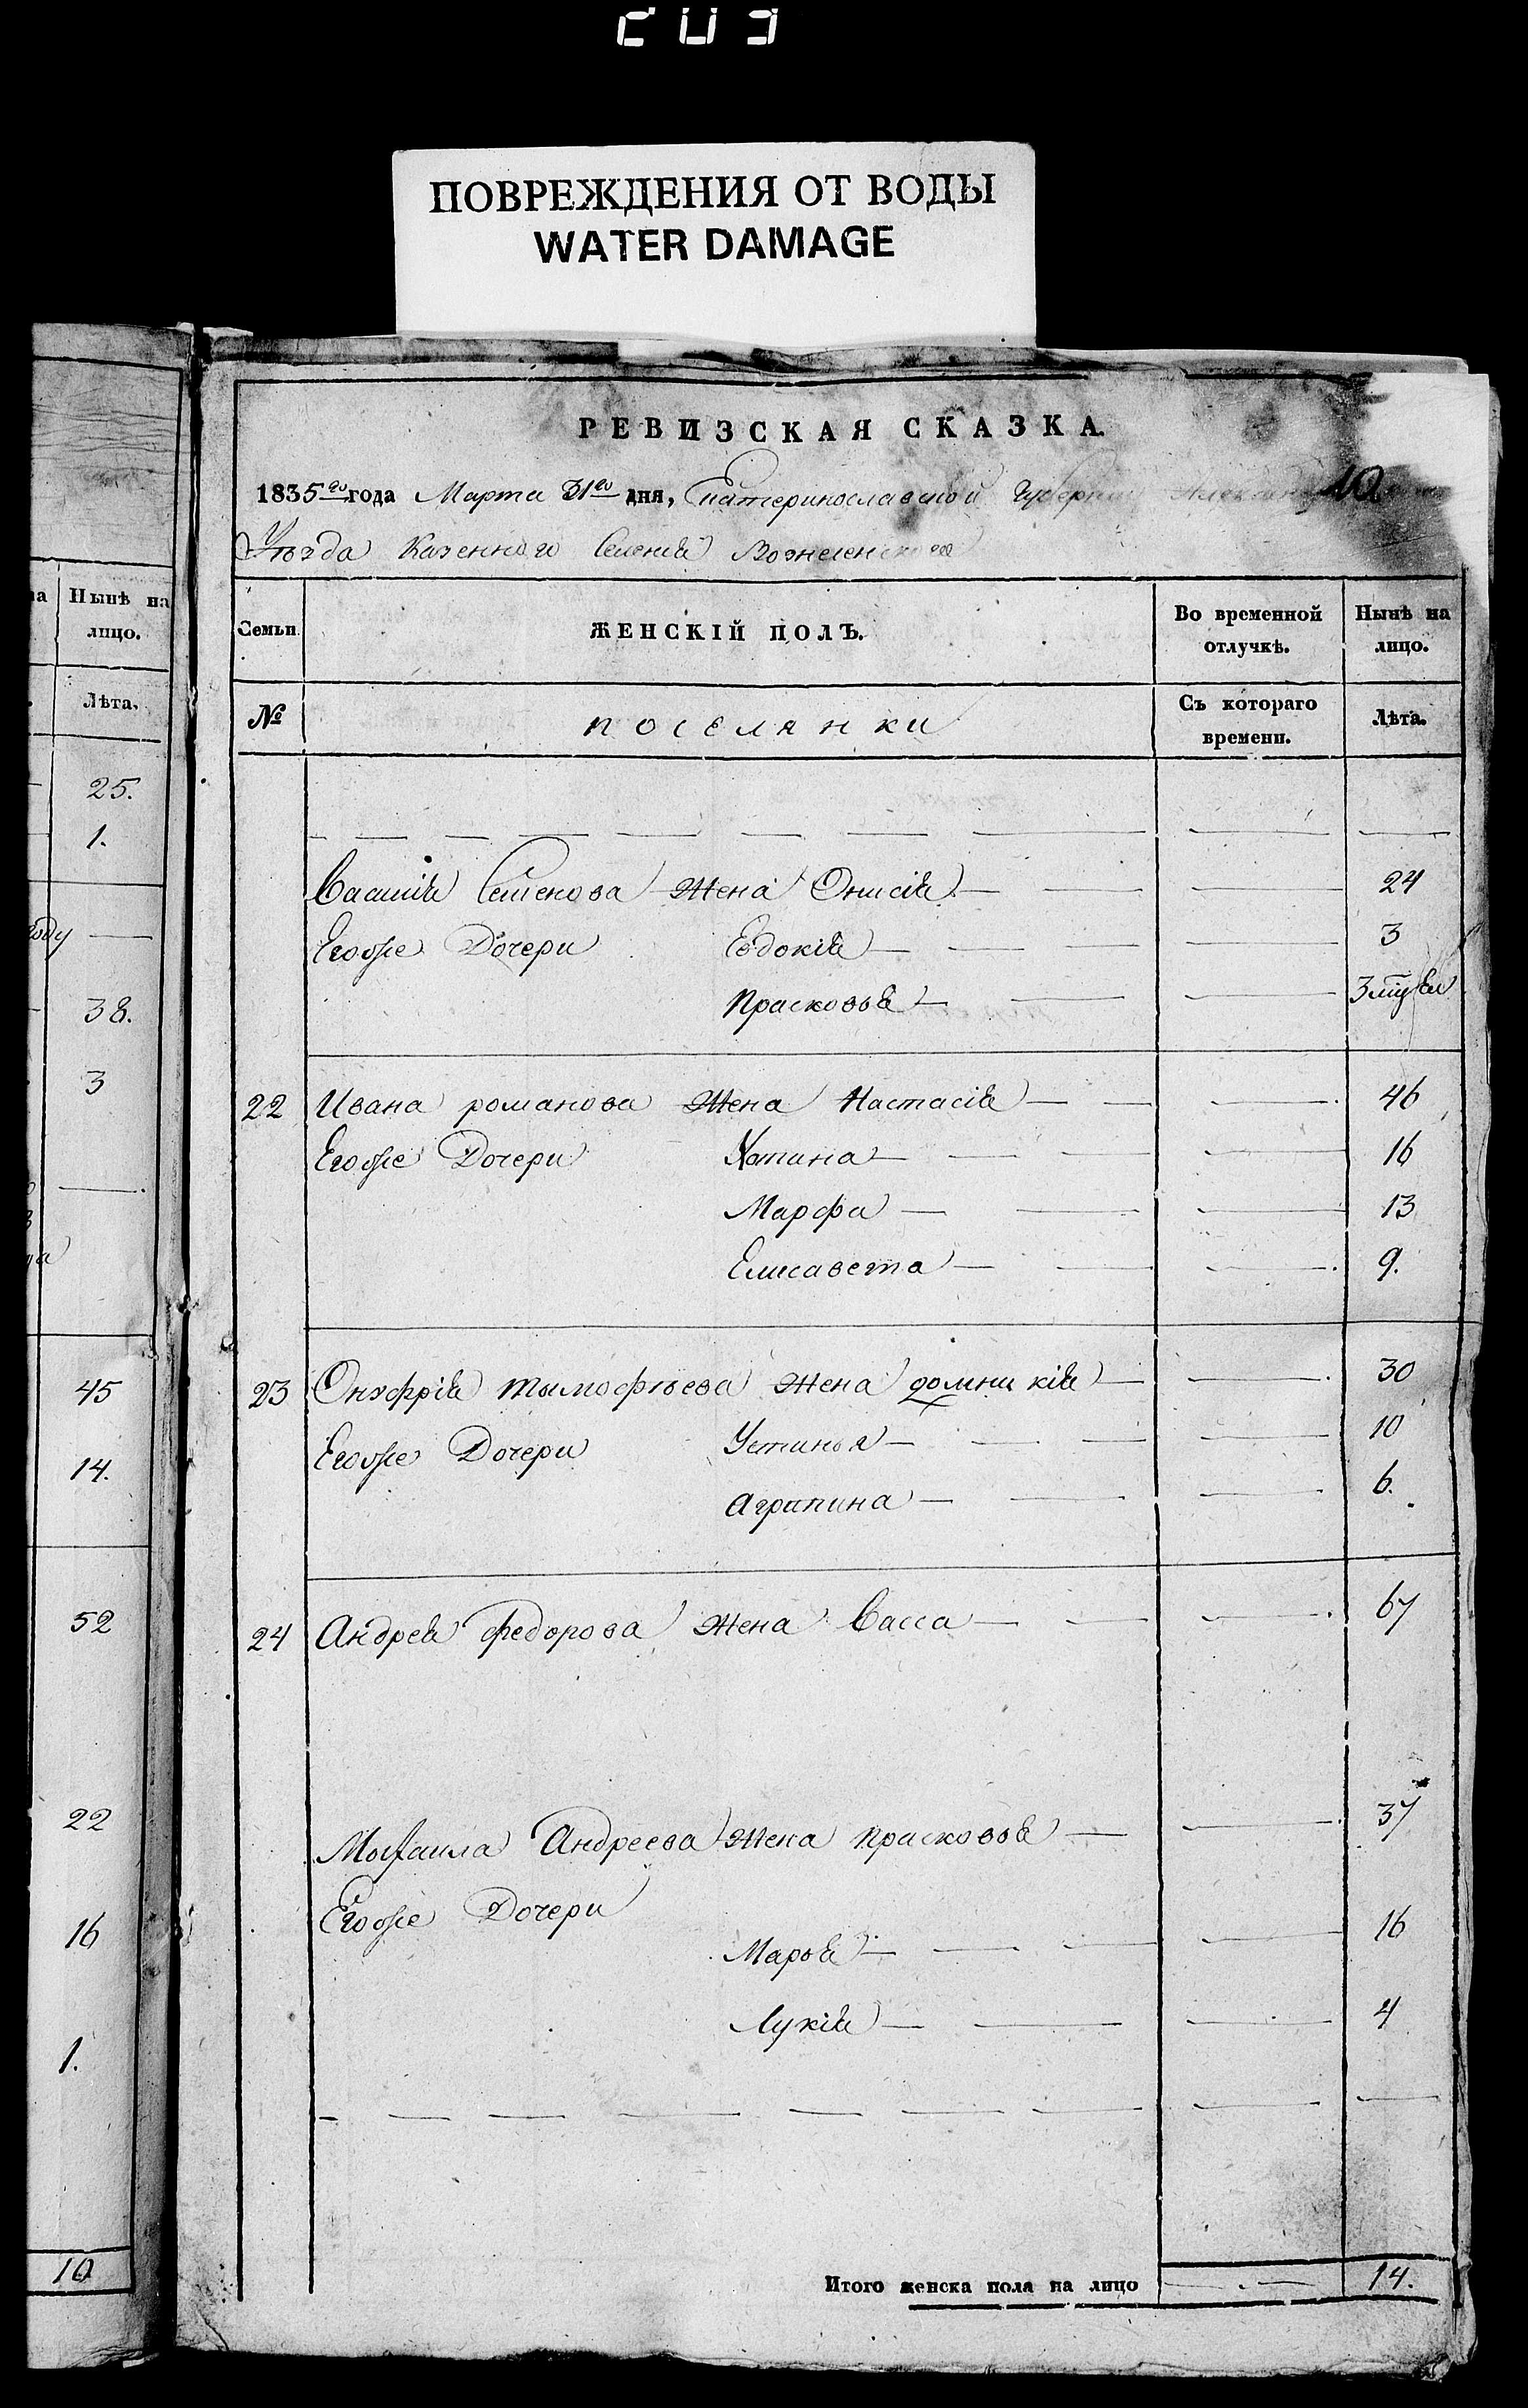 203
ПОВРЕЖДЕНИЯ ОТ ВОДЫ
WATER DAMAGE
РЕВИЗСКАЯ СКАЗКА.
10
1835го года Марта 31го дня, Екатеринославской Губерніи
Уѣзда Казенного Селенія Вознесенского
Нынѣ на лицо.
Лѣта.
25.
1.
году
38.
3
45
14.
52
22
16
1.
10
Семьи. ЖЕНСКІЙ ПОЛЪ. Во временной отлучкѣ. Нынѣ на лицо.
№ поселянки Съ котораго времени. Лѣта.
Василія Семенова Жена Онисія 24
Егоже Дочери Евдокія 3
Прасковья 3
22 Ивана романова Жена Настасія 46
Егоже Дочери Устина 16
Марфа 13
Елисавета 9.
23 Онуфрія тымофѣева Жена домникія 30
Егоже Дочери Устинья 10
Агрипина 6.
24 Андрея федорова Жена Васса 67
Михаила Андреева Жена прасковья 37
Егоже Дочери
Марья 16
Лукія 4
Итого женска пола на лицо 14.